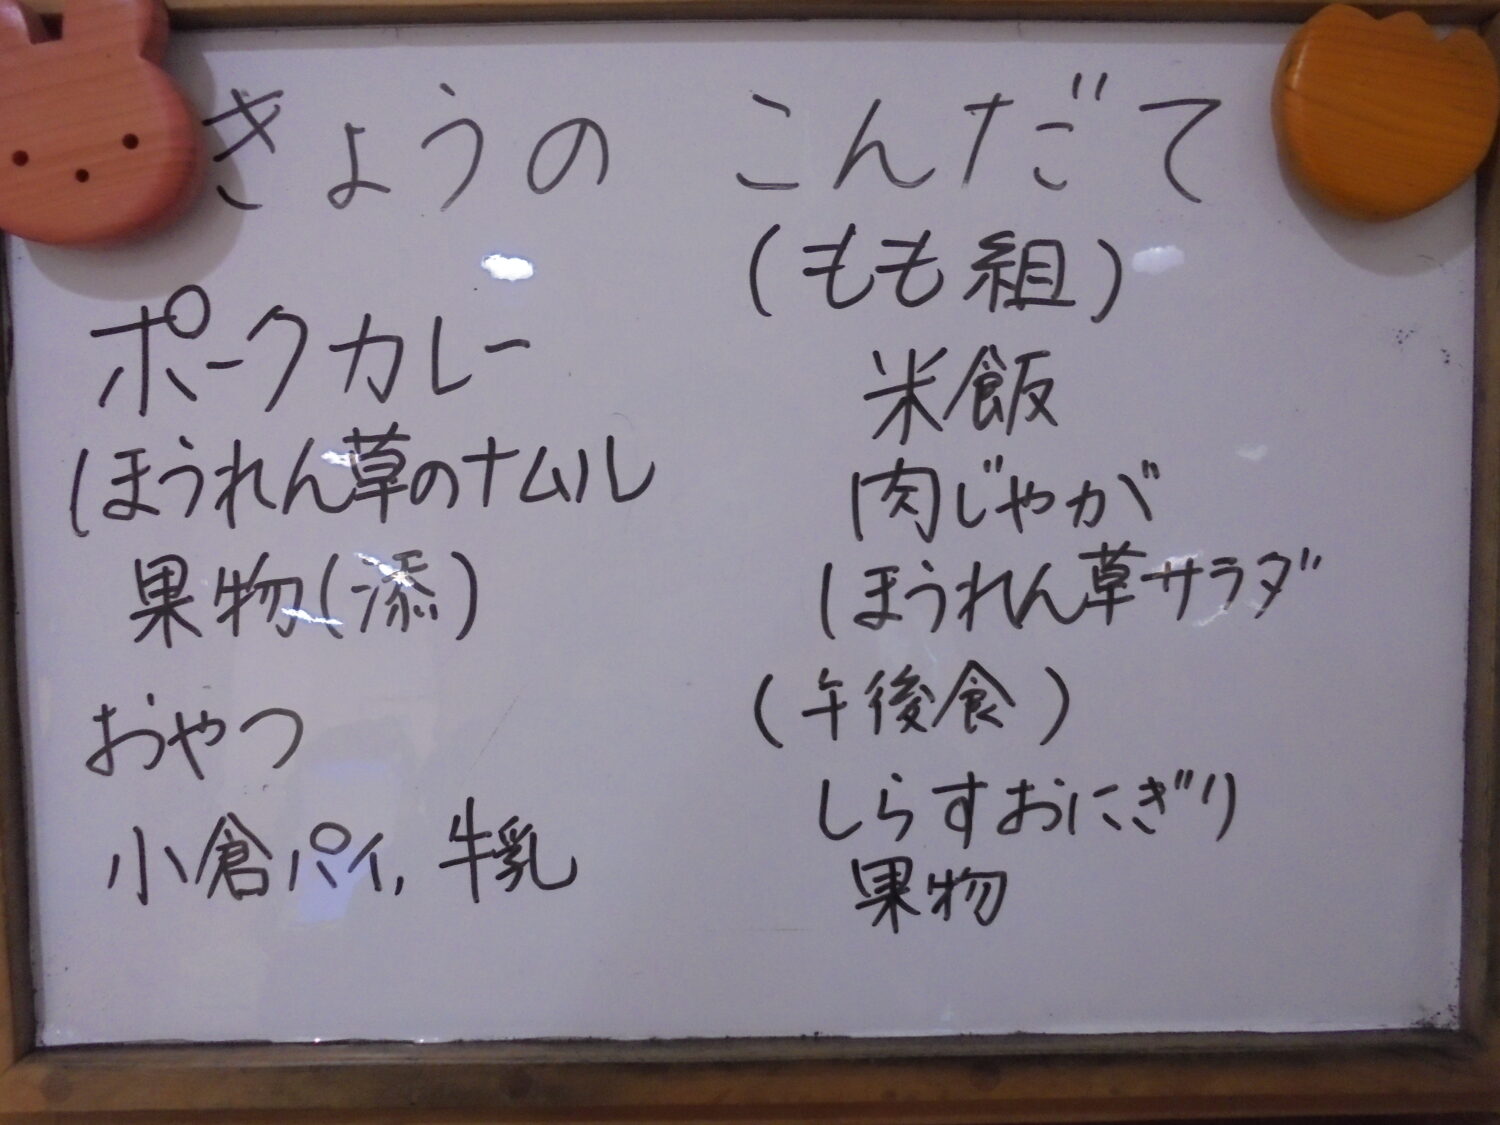 きょうの こんだて
ポークカレー
ほうれん草のナムル
果物(添)
おやつ
小倉パイ, 牛乳
(もも組)
米飯
肉じゃが
ほうれん草サラダ
(午後食)
しらすおにぎり
果物